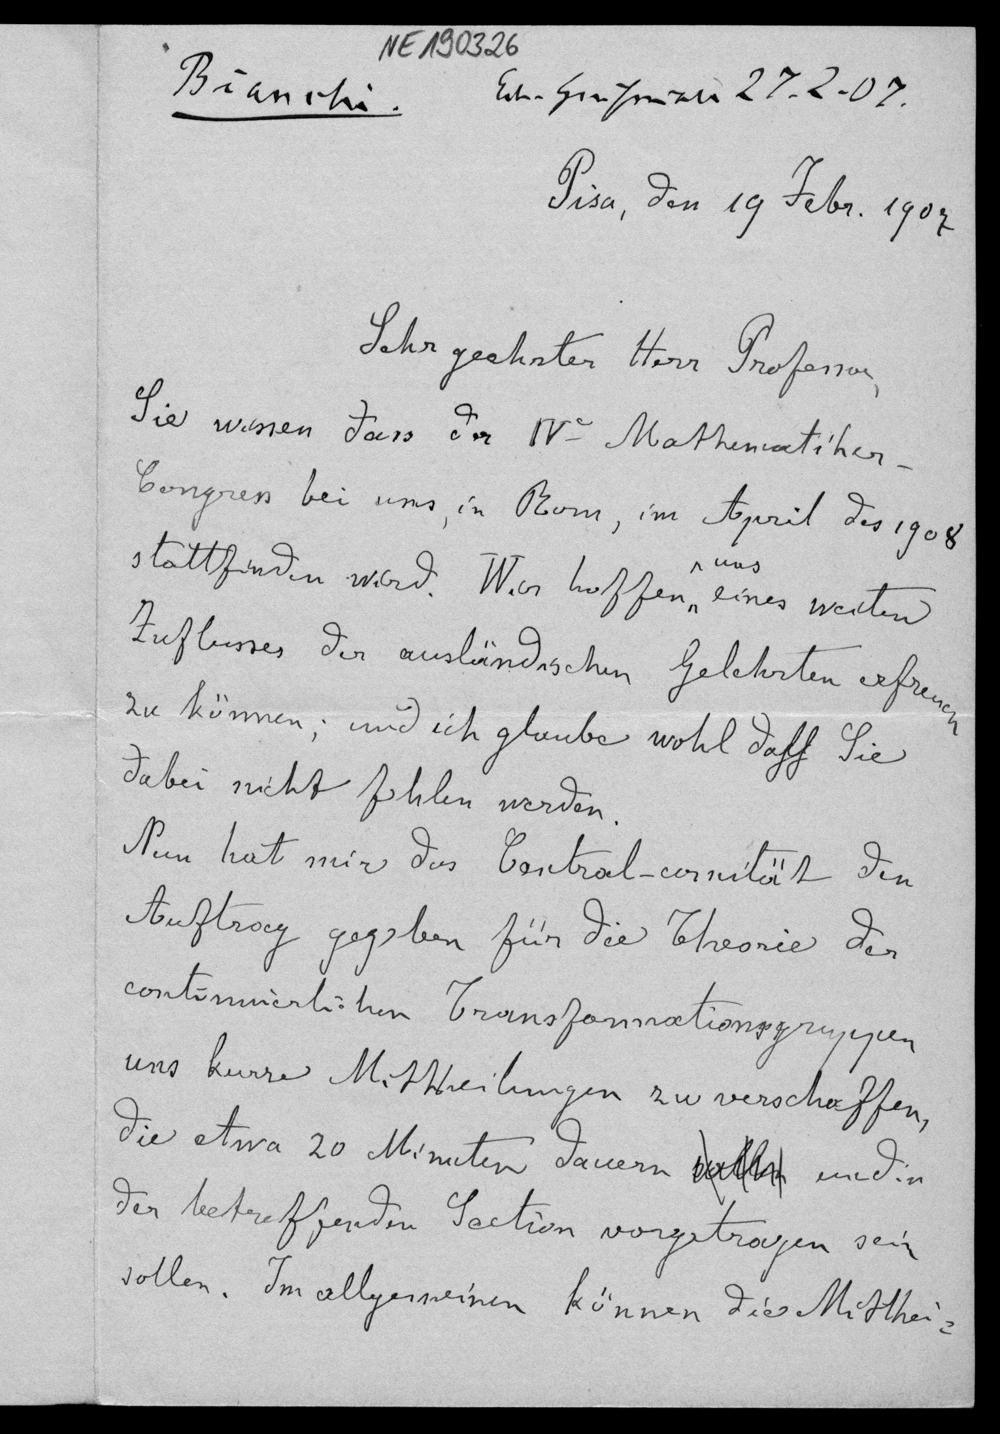 NE190326
Bianchi. 27.2.07.
Pisa, den 19 Febr. 1907
Sehr geehrter Herr Professor,
Sie wissen dass der IVe Mathematiker-
Congress bei uns, in Rom, im April des 1908
stattfinden wird. Wir hoffen uns eines weiten
Zuflusses der ausländischen Gelehrten erfreuen
zu können; und ich glaube wohl daß Sie
dabei nicht fehlen werden.
Nun hat mir das Central-comität den
Auftrag gegeben für die Theorie der
continuierlichen Transformationsgruppen
uns kurze Mittheilungen zu verschaffen,
die etwa 20 Minuten dauern und in
der betreffenden Section vorgetragen sein
sollen. Im allgemeinen können die Mitthei=